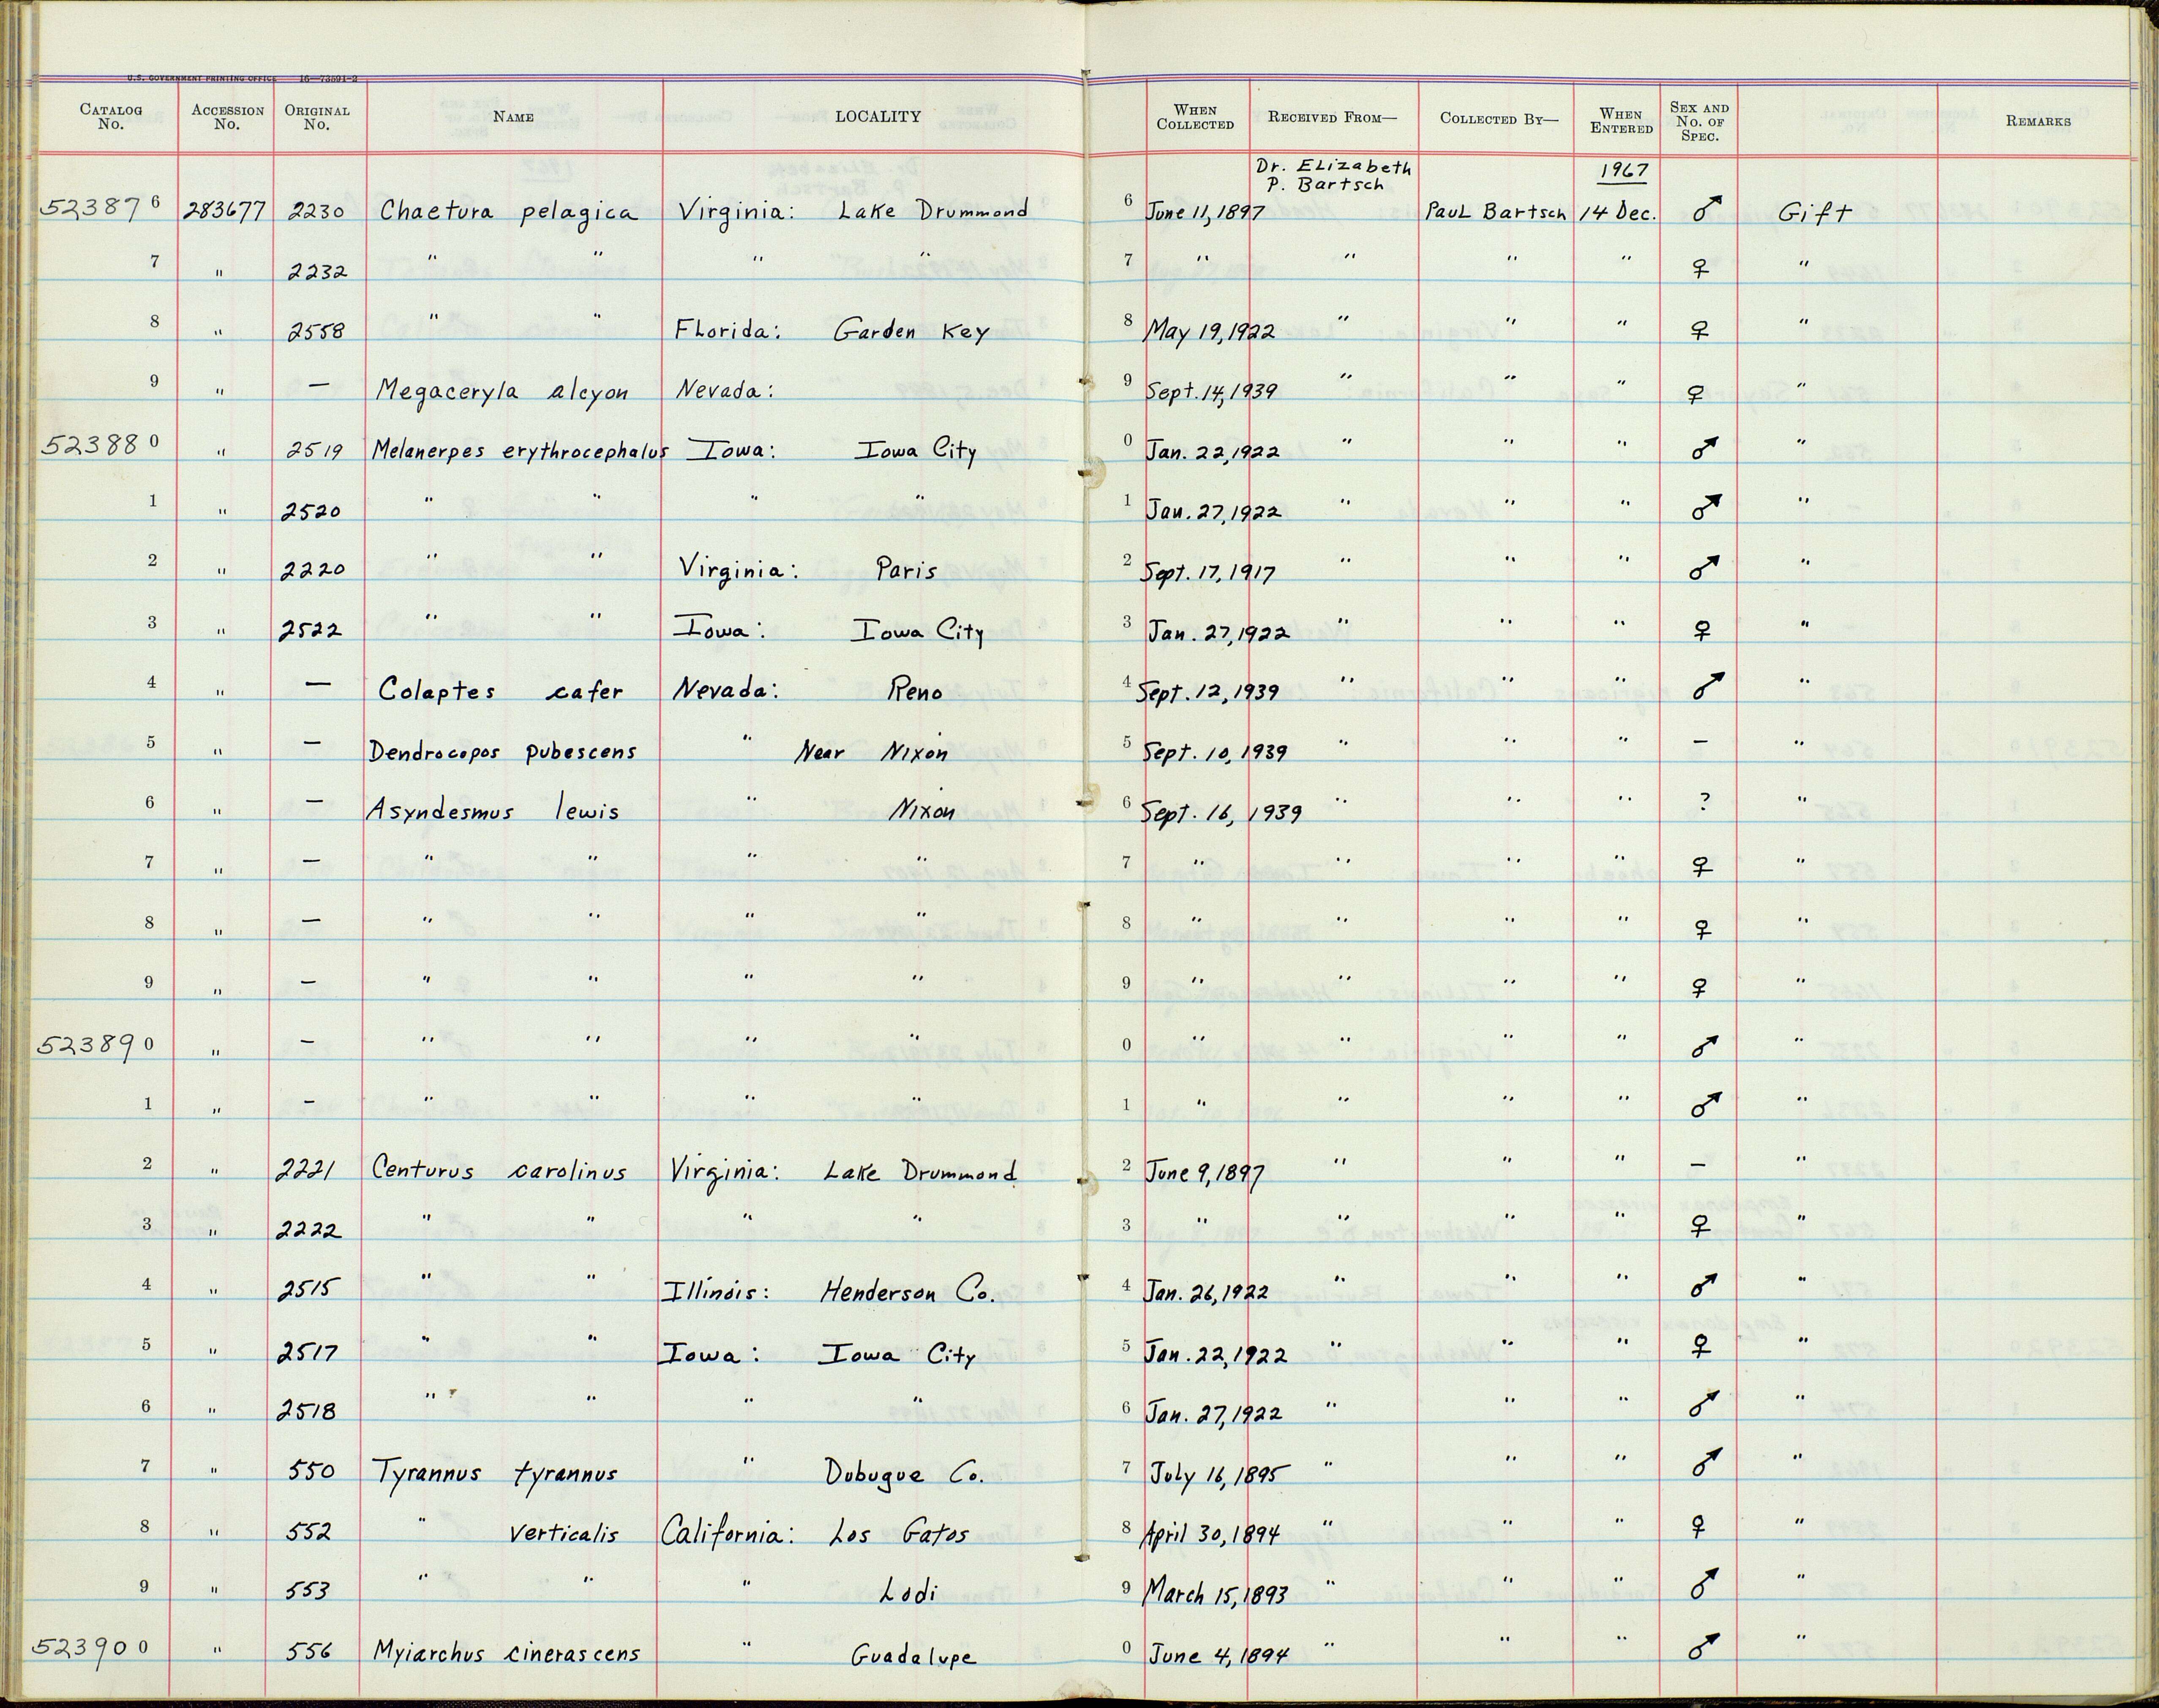 U.S. GOVERNMENT PRINTING OFFICE 16—73591-2
CATALOG No. ACCESSION No. ORIGINAL No. NAME LOCALITY WHEN COLLECTED RECEIVED FROM— COLLECTED BY— WHEN ENTERED SEX AND No. OF SPEC. REMARKS
Dr. Elizabeth P. Bartsch 1967
523876 283677 2230 Chaetura pelagica Virginia: Lake Drummond 6 June 11, 1897 Paul Bartsch 14 Dec. ♂ Gift
7 " 2232 " " " " 7 " " " " ♀ "
8 " 2558 " " Florida: Garden Key 8 May 19, 1922 " " " ♀ "
9 " — Megaceryla alcyon Nevada: 9 Sept. 14, 1939 " " " ♀ "
523880 " 2519 Melanerpes erythrocephalus Iowa: Iowa City 0 Jan. 22, 1922 " " " ♂ "
1 " 2520 " " " " 1 Jan. 27, 1922 " " " ♂ "
2 " 2220 " " Virginia: Paris 2 Sept. 17, 1917 " " " ♂ "
3 " 2522 " " Iowa: Iowa City 3 Jan. 27, 1922 " " " ♀ "
4 " — Colaptes cafer Nevada: Reno 4 Sept. 12, 1939 " " " ♂ "
5 " — Dendrocopos pubescens " Near Nixon 5 Sept. 10, 1939 " " " — "
6 " — Asyndesmus lewis " Nixon 6 Sept. 16, 1939 " " " ? "
7 " — " " " " 7 " " " " ♀ "
8 " — " " " " 8 " " " " ♀ "
9 " — " " " " 9 " " " " ♀ "
523890 " — " " " " 0 " " " " ♂ "
1 " — " " " " 1 " " " " ♂ "
2 " 2221 Centurus carolinus Virginia: Lake Drummond 2 June 9, 1897 " " " — "
3 " 2222 " " " " 3 " " " " ♀ "
4 " 2515 " " Illinois: Henderson Co. 4 Jan. 26, 1922 " " " ♂ "
5 " 2517 " " Iowa: Iowa City 5 Jan. 22, 1922 " " " ♀ "
6 " 2518 " " " " 6 Jan. 27, 1922 " " " ♂ "
7 " 550 Tyrannus tyrannus " Dubuque Co. 7 July 16, 1895 " " " ♂ "
8 " 552 " verticalis California: Los Gatos 8 April 30, 1894 " " " ♀ "
9 " 553 " " " Lodi 9 March 15, 1893 " " " ♂ "
523900 " 556 Myiarchus cinerascens " Guadalupe 0 June 4, 1894 " " " ♂ "